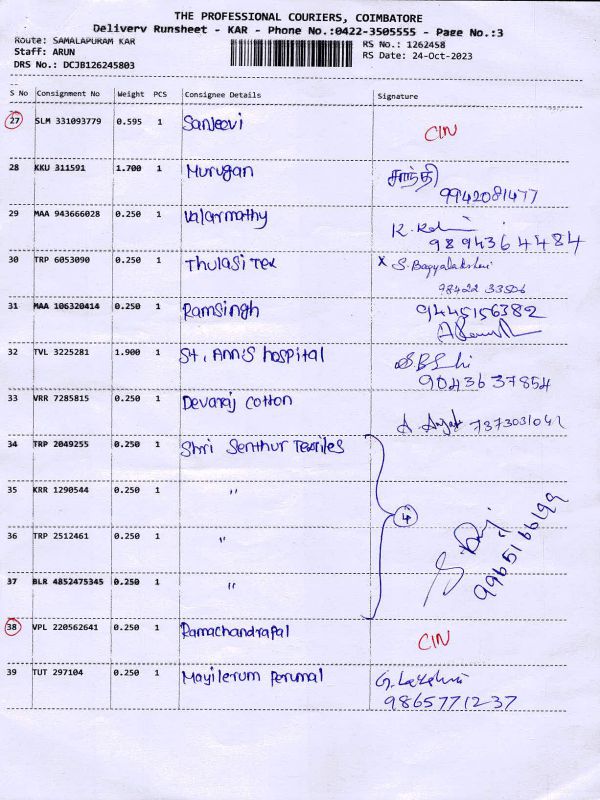 THE PROFESSIONAL COURIERS, COIMBATORE
Delivery Runsheet - KAR - Phone No.:0422-3505555 - Page No.:3
Route: SAMALAPURAM KAR
RS No.: 1262458
Staff: ARUN
RS Date: 24-Oct-2023
DRS No.: DCJB126245803
S No Consignment No Weight PCS Consignee Details Signature
27 SLM 331093779 0.595 1 Sanjeevi CIN
28 KKU 311591 1.700 1 Murugan சாந்தி
9942081477
29 MAA 943666028 0.250 1 Valarmathy
9894364484
30 TRP 6053090 0.250 1 Thulasi Tex x S. Bagyalakshmi
98422 33506
31 MAA 106320414 0.250 1 Ramsingh 9445156382
32 TVL 3225281 1.900 1 St. Ann's hospital
9043637854
33 VRR 7285815 0.250 1 Devaraj Cotton
7373031042
34 TRP 2049255 0.250 1 Shri Senthur Textiles
35 KRR 1290544 0.250 1 "
4
36 TRP 2512461 0.250 1 "
9965166199
37 BLR 4852475345 0.250 1 "
38 VPL 220562641 0.250 1 Ramachandrapal CIN
39 TUT 297104 0.250 1 Mayilerum Perumal
9865771237